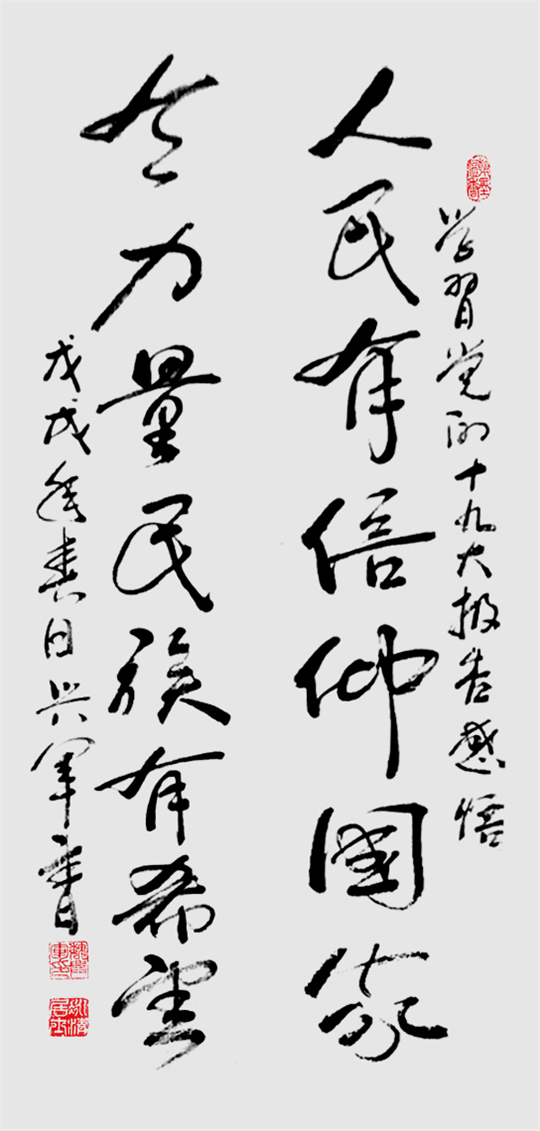 学習党的十九大报告感悟
人民有信仰國家
有力量民族有希望
戊戌年春日兴军書